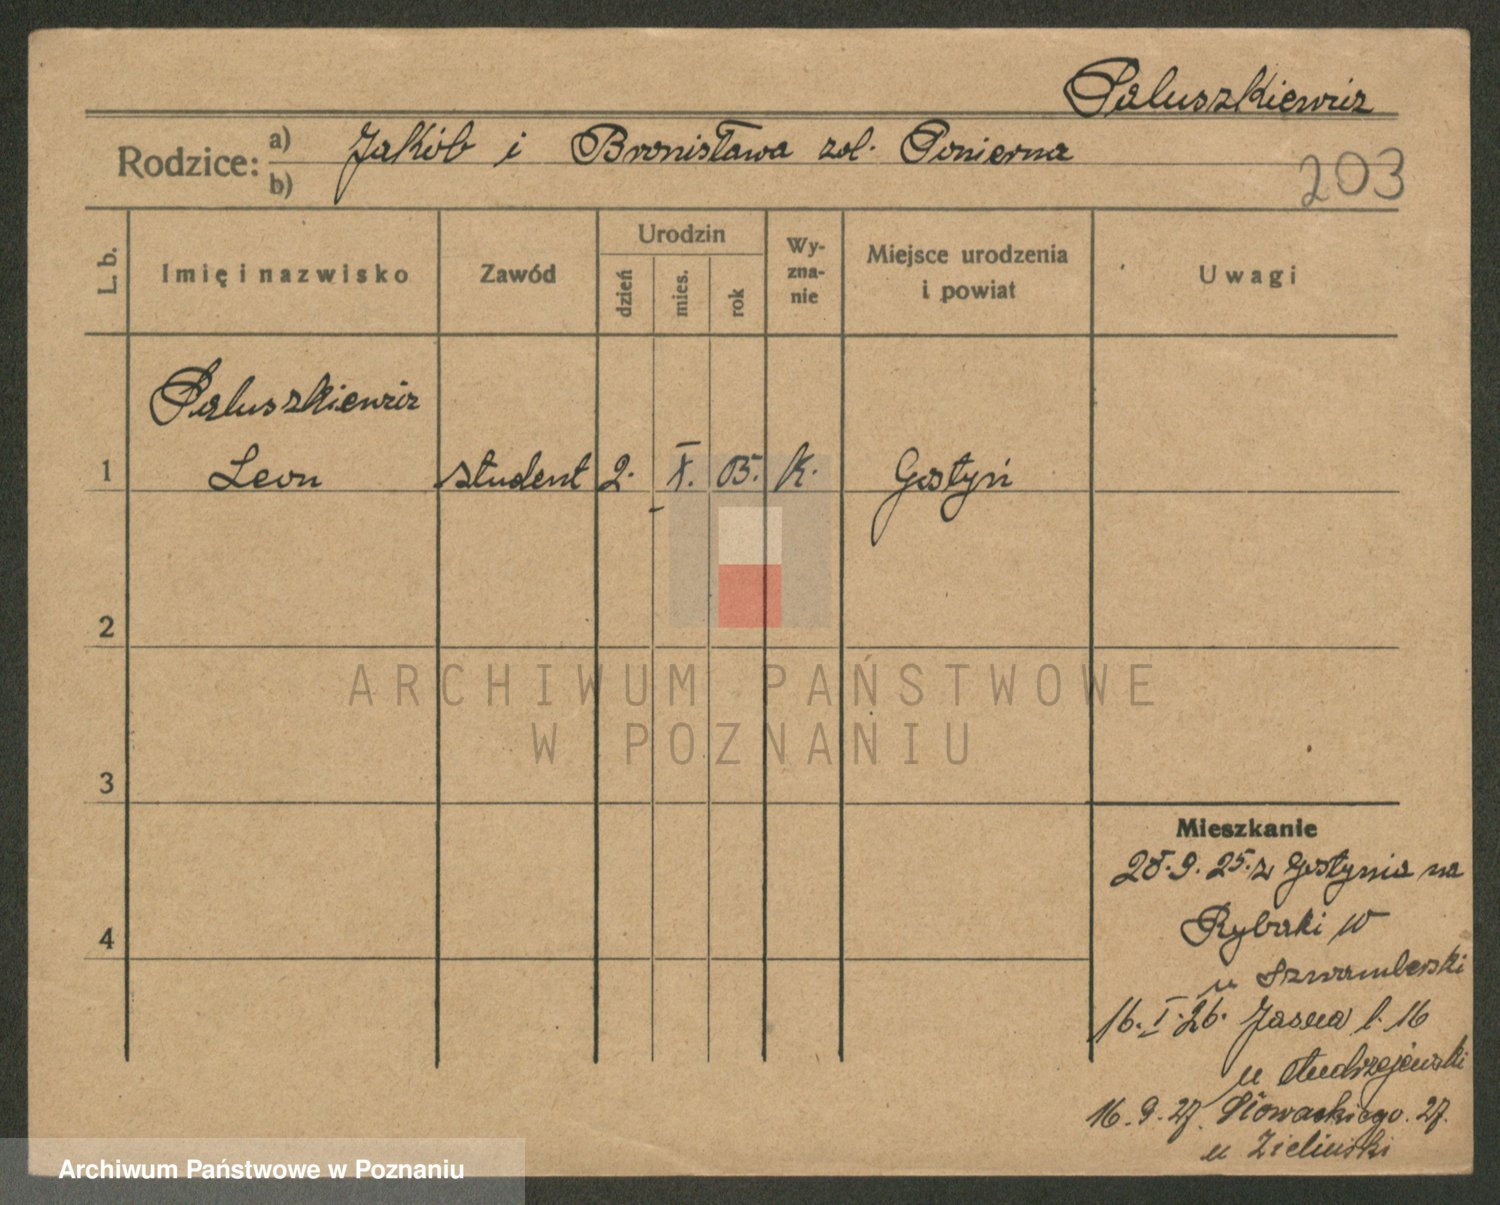 Paluszkiewicz
Rodzice: a) Jakób i Bronisława
b)
203
L. b.
Imię i nazwisko
Zawód
Urodzin
dzień
mies.
rok
Wy-
zna-
nie
Miejsce urodzenia
i powiat
Uwagi
Paluszkiewicz
1 Leon student 2. X. 05. K. Gostyń
2
3
4
Mieszkanie
9. 25. z Gostynia na
Rybaki
u
16. I. 26. Jasna l. 16
u Andrzejewski
16. 9. 27. Słowackiego. 27.
u Zieliński
ARCHIWUM PAŃSTWOWE
W POZNANIU
Archiwum Państwowe w Poznaniu